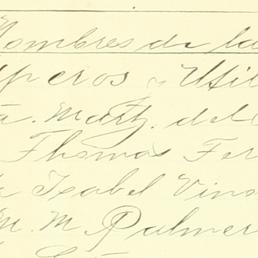 Nombres de la
Aperos y Util
a. Martz. del
Thomas Fer
Isabel Vins
M. M. Palmer